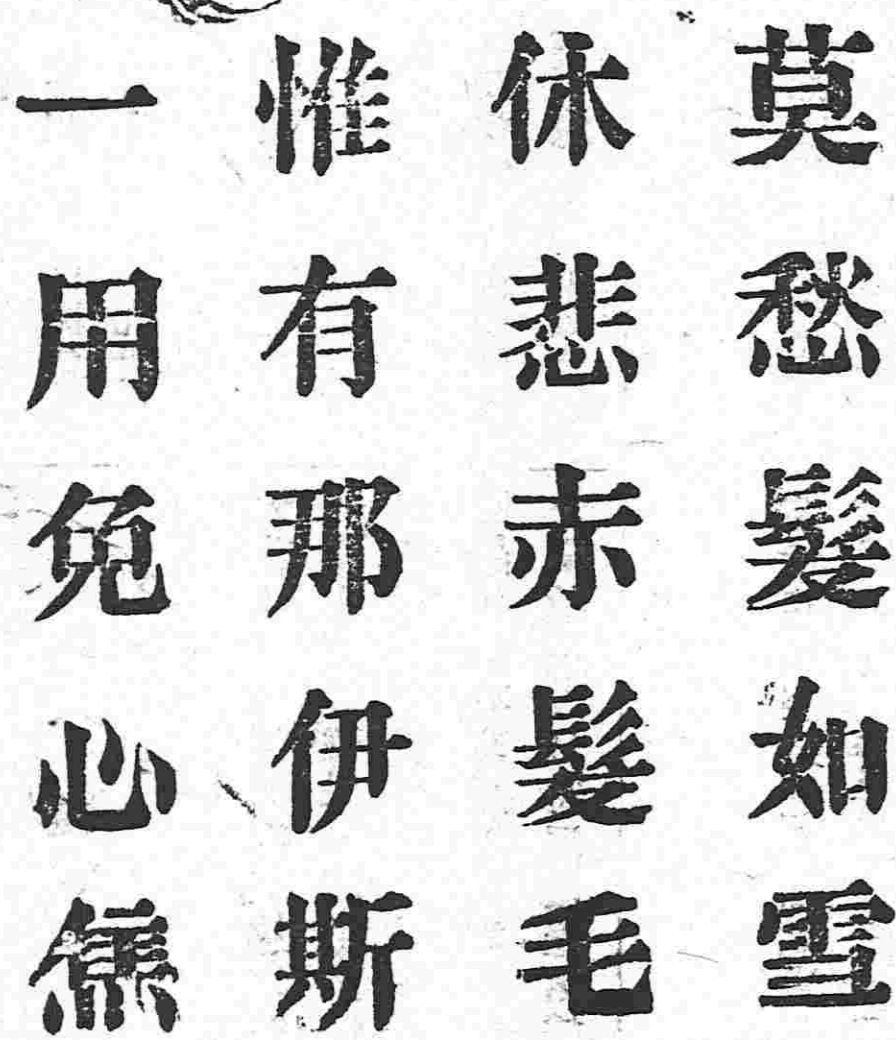 莫愁髮如雪
休悲赤髮毛
惟有那伊斯
一用免心焦